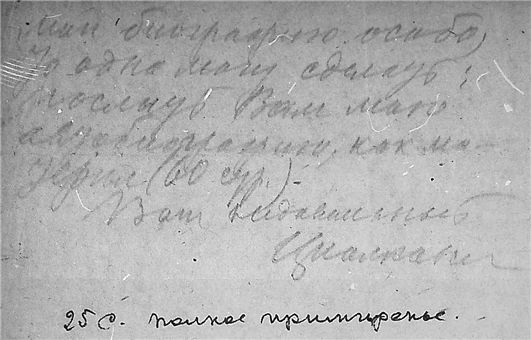 мою биографию особо,
Но одно могу сделать:
послать Вам мою
автобиографию, как ма-
териал (60 стр.).
Ваш
Циолковский
25 С. полное примиренье.